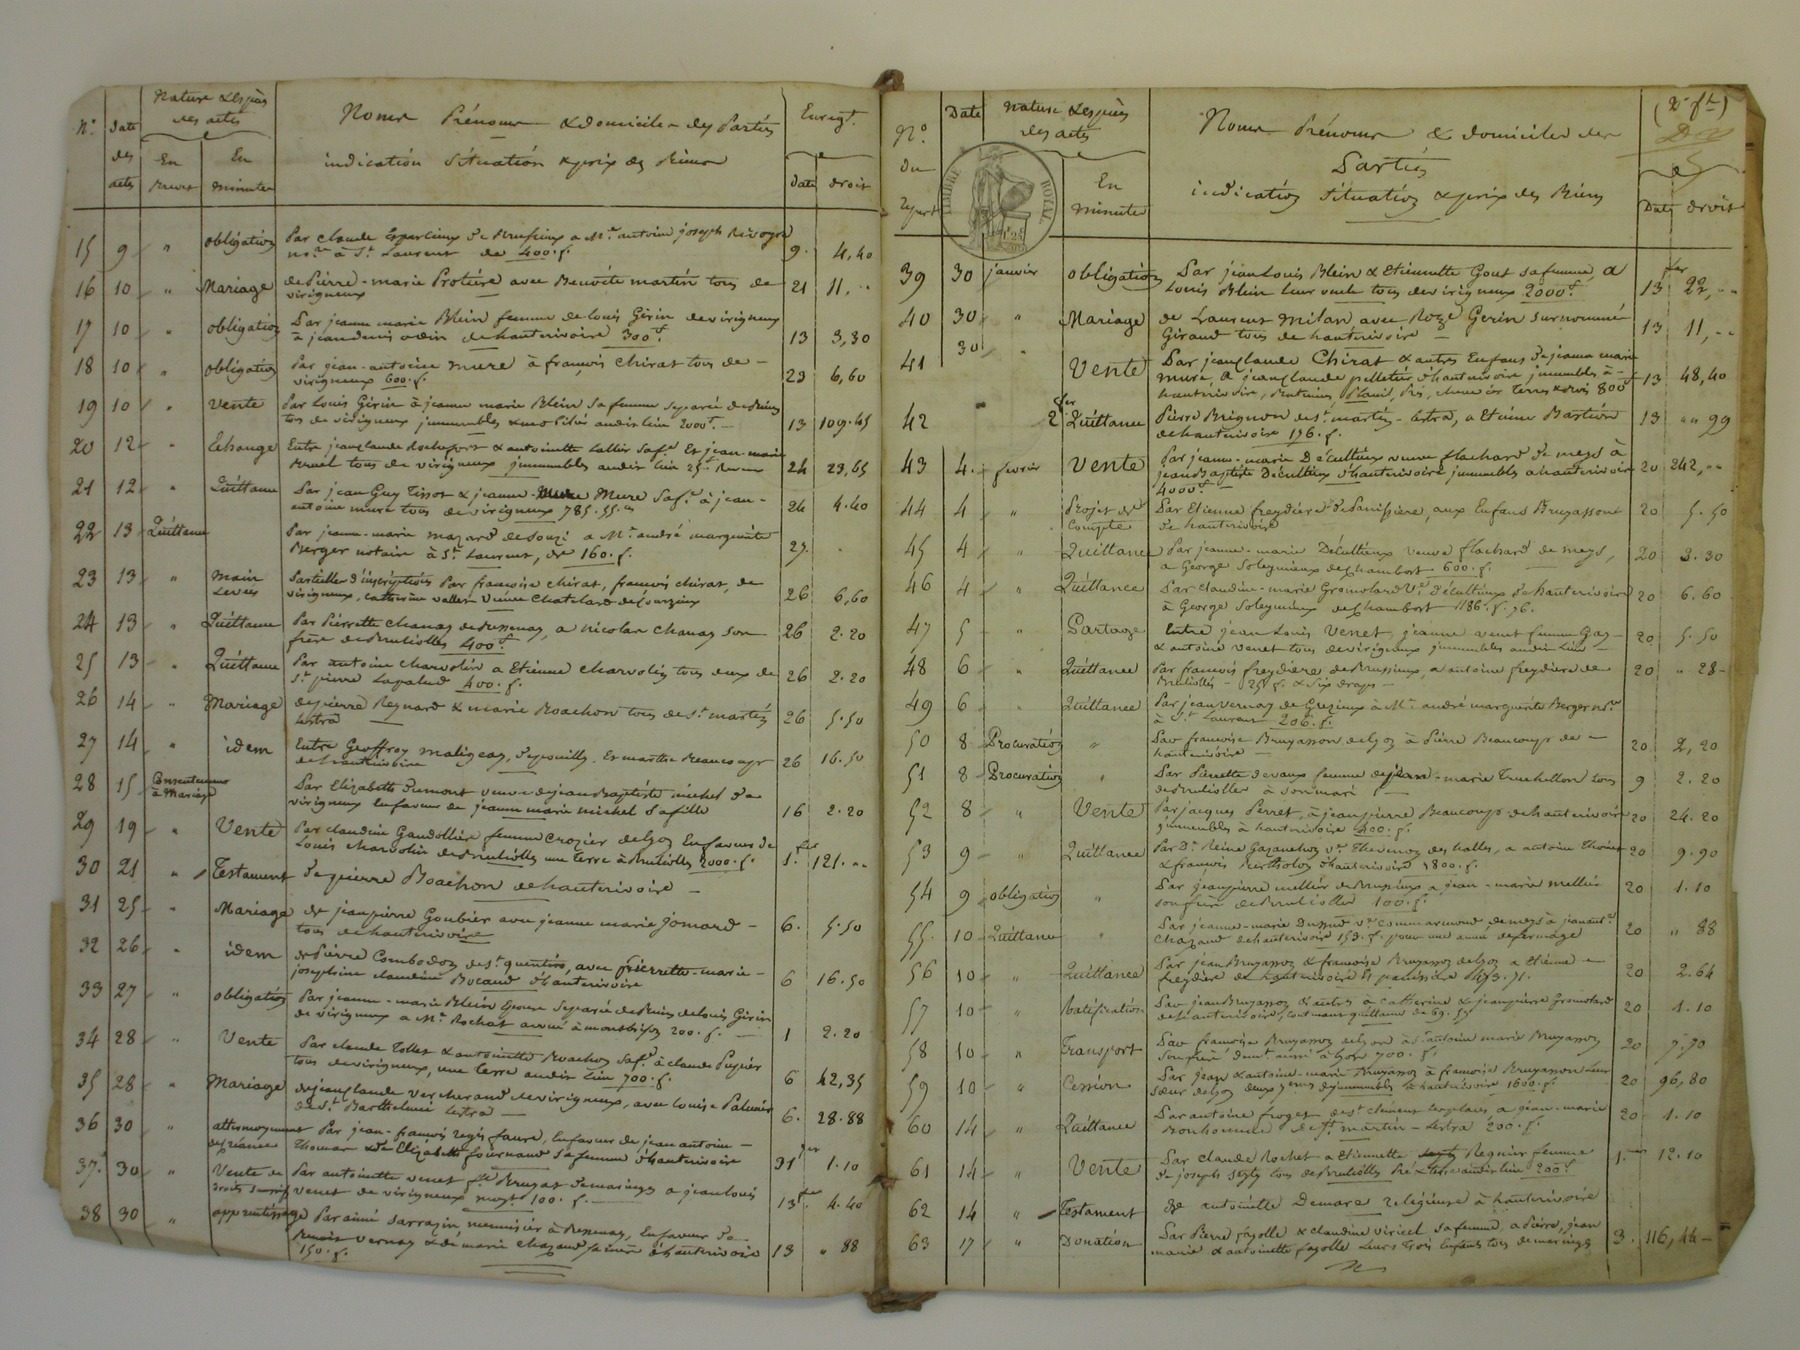 N.º Date des actes
Nature & espèce des actes
En Brevet En minutes
Noms Prénoms & domiciles des Parties
indication Situation & prix des Biens
Enregt.
Date droit
15 9 " obligation Par claude Esparcieux de Brussieux a Mr. antoine joseph
nore. à St. Laurent de 400. f. 9. 4,40
16 10 " Mariage de Pierre-marie Protière avec Benoite martin tous de
virigneux 21 11, "
17 10 " obligation Par jeanne marie Blein femme de louis Girin de virigneux
à jean denis odin de hauterivoire 300 f. 13 3,30
18 10 " obligation Par jean-antoine mure à françois chirat tous de
virigneux 600. f. 23 6,60
19 10 " Vente Par Louis Girin à jeanne marie Blein sa femme separée de Biens
tous de virigneux jmmeubles & mobiliés audit lieu 2000 f. 13 109.45
20 12 " Echange Entre jean claude Rochefort & antoinette sa fe. Et jean marie
tous de virigneux jmmeubles audit lieu 25 f. Revenu 24 23,65
21 12 " Quittance Par jean Guy Tissot & jeanne Mure sa fe. à jean-
antoine mure tous de virigneux 785. 55. c 24 4.40
22 13 Quittance Par jeanne-marie mazard de Souzi a Mr. andré marguerite
Berger notaire à St. Laurent, de 160. f. 27.
23 13 " Main Levées Partielles d'inscriptions Par françoise chirat, françois chirat, de
virigneux, catherine vallet Veuve Chatelard de 26 6,60
24 13 " Quittance Par Pierrette Chanay de Bessenay, a nicolas Chanay son
frère de Brullioles 400 f. 26 2.20
25 13 " Quittance Par antoine charvolin a Etienne charvolin tous deux de
St. pierre Lapalud 400. f. 26 2.20
26 14 " Mariage de pierre Reynard & marie Roachon tous de St. martin
lestra 26 5.50
27 14 " idem Entre Geoffroy maligeay, de pouilly. Et marthe Beaucoup
de hauterivoire 26 16.50
28 15 Consentement à Mariage Par Elizabeth Dumont veuve de jean Baptiste michel de
virigneux En faveur de jeanne marie michel sa fille 16 2.20
29 19 " Vente Par claudine Gaudollière femme crozier de Lyon En faveur de
Louis charvolin de Brullioles une terre à Brullioles 2000. f. 1.er 121. "
30 21 " Testament de pierre Roachon de hauterivoire
31 25 " Mariage de jean pierre Goubier avec jeanne marie jomard
tous de hauterivoire 6. 5.50
32 26 " idem de Pierre Combodoz de St. quentin, avec pierrette-marie
josephine claudine Bocaud d'hauterivoire 6 16.50
33 27 " obligation Par jeanne-marie Blein Epouse Separée de Biens de louis Girin
de virigneux a Mr. Rochat avoué à montbrison 200. f. 1 2.20
34 28 " Vente Par claude Tollet & antoinette Roachon sa fe. à claude Pupier
tous de virigneux, une terre audit lieu 700. f. 6 42,35
35 28 " Mariage de jean claude Vercherand de virigneux, avec louise Palmier
de St. Barthelmie lestra 6. 28.88
36 30 " attermoyment de créance Par jean-françois regis faure, En faveur de jean antoine
Thomas & de Elizabeth fournand sa femme d'hauterivoire 31 1.10
37. 30 " Vente de droits Par antoinette venet fe. Bruyas de maringe a jean louis
venet de virigneux moyt. 100. f. 13 4.40
38 30 " apprentissage Par aimé Sarrazin menuisier à Bessenay, En faveur de
Benoit Vernay & de marie chazaud sa mère d'hauterivoire
150. f. 13 " 88
N.º Du Repert Date nature & espèce des actes
En minutes
Noms Prénoms & domiciles des
Parties
indication Situation & prix des Biens
(2e ft.)
Date droit
TIMBRE ROYAL
39 30 janvier obligation Par jean Louis Blein & Etiennette Gout sa femme, a
Louis Blein leur oncle tous de virigneux 2000 f. 13 22, "
40 30 " Mariage de Laurent Milan avec Roze Gerin surnommée
Giraud tous de hauterivoire 13 11, "
41 30 " Vente Par jean claude Chirat & autres Enfans de jeanne marie
mure, a jean claude pelletier d'hauterivoire jmmeubles à
hauterivoire, Prés, terres & Bois 800 f. 13 48,40
42 " 2 Quittance Pierre Brignon de St. martin-lestra, a Etienne Bastion
de hauterivoire 176. f. 13 " 99
43 4. fevrier Vente Par jeanne-marie Décultieux veuve flachard de meys à
jean Baptiste Décultieux d'hauterivoire jmmeubles a hauterivoire
4000 f. 20 242, "
44 4 " Projet de Compte Par Etienne freydière de Panissière, aux Enfans Bruyassont
de hauterivoire 20 5.50
45 4 " Quittance Par jeanne-marie Décultieux veuve flachard de meys,
a George Soleymieux de Chambost 600. f. 20 3.30
46 4 " Quittance Par claudine-marie Gromolard Ve. Décultieux de hauterivoire
à George Soleymieux de Chambost 1186. f. 76. 20 6.60
47 5 " Partage Entre jean Louis Venet, jeanne venet femme Gay
& antoine venet tous de virigneux jmmeubles audit lieu 20 5.50
48 6 " Quittance Par françois freydière de Brussieux, a antoine freydière de
Brullioles 25 f. & six draps 20 " 28
49 6 " Quittance Par jean vernay de Grezieux à Mr. andré marguerite Berger nore.
à St. Laurent 206. f.
50 8 Procuration " Par françoise Bruyasson de Lyon à Pierre Beaucoup de
hauterivoire 20 2,20
51 8 Procuration " Par Pierrette devaux femme de jean-marie Truchollon tous
de Brullioles à son mari 9 2.20
52 8 " Vente Par jacques Perret, à jean pierre Beaucoup de hauterivoire
jmmeubles à hauterivoire 400. f. 20 24.20
53 9 " Quittance Par De. Reine Gazanchon ve. Thevenoz des halles, a antoine Thoinet
& françois Berthollon d'hauterivoire 1800. f. 20 9.90
54 9 obligation " Par jean pierre mellier de Brussieux a jean-marie mellier
son frère de Brullioles 100. f. 20 1.10
55. 10 Quittance " Par jeanne-marie Dussud ve. commarmond, de meys à jean ante.
Chazaud de hauterivoire 153. f. pour une année de fermage 20 " 88
56 10 " Quittance Par jean Bruyasson & françoise Bruyasson de Lyon a Etienne
freydière de hauterivoire Et panissière 473. 71. 20 2.64
57 10 " Ratification Par jean Bruyasson & autres à Catherine & jean pierre Gromolard
de hauterivoire, contenant quittance de 69. 20 1.10
58 10 " Transport Par françoise Bruyasson de Lyon à antoine marie Bruyasson
son frère demt. aussi à Lyon 700. f. 20 7.70
59 10 " Cession Par jean & antoine-marie Bruyasson à françoise Bruyasson leur
sœur de Lyon deux 7emes d'jmmeubles à hauterivoire 1600. f. 20 96,80
60 14 " Quittance Par antoine froget de St. clement les places, a jean-marie
Bonhomme de St. martin-lestra 200. f. 20 1.10
61 14 " Vente Par Claude Rochet a Etiennette Regnier femme
de joseph tous de Brullioles Pré & terre audit lieu 200 f. 1. 12.10
62 14 " Testament de antoinette Demare religieuse à hauterivoire
63 17 " Donation Par Pierre fayolle & claudine viricel sa femme, a Pierre, jean
marie & antoinette fayolle leurs trois Enfans tous de maringe 3. 116,44